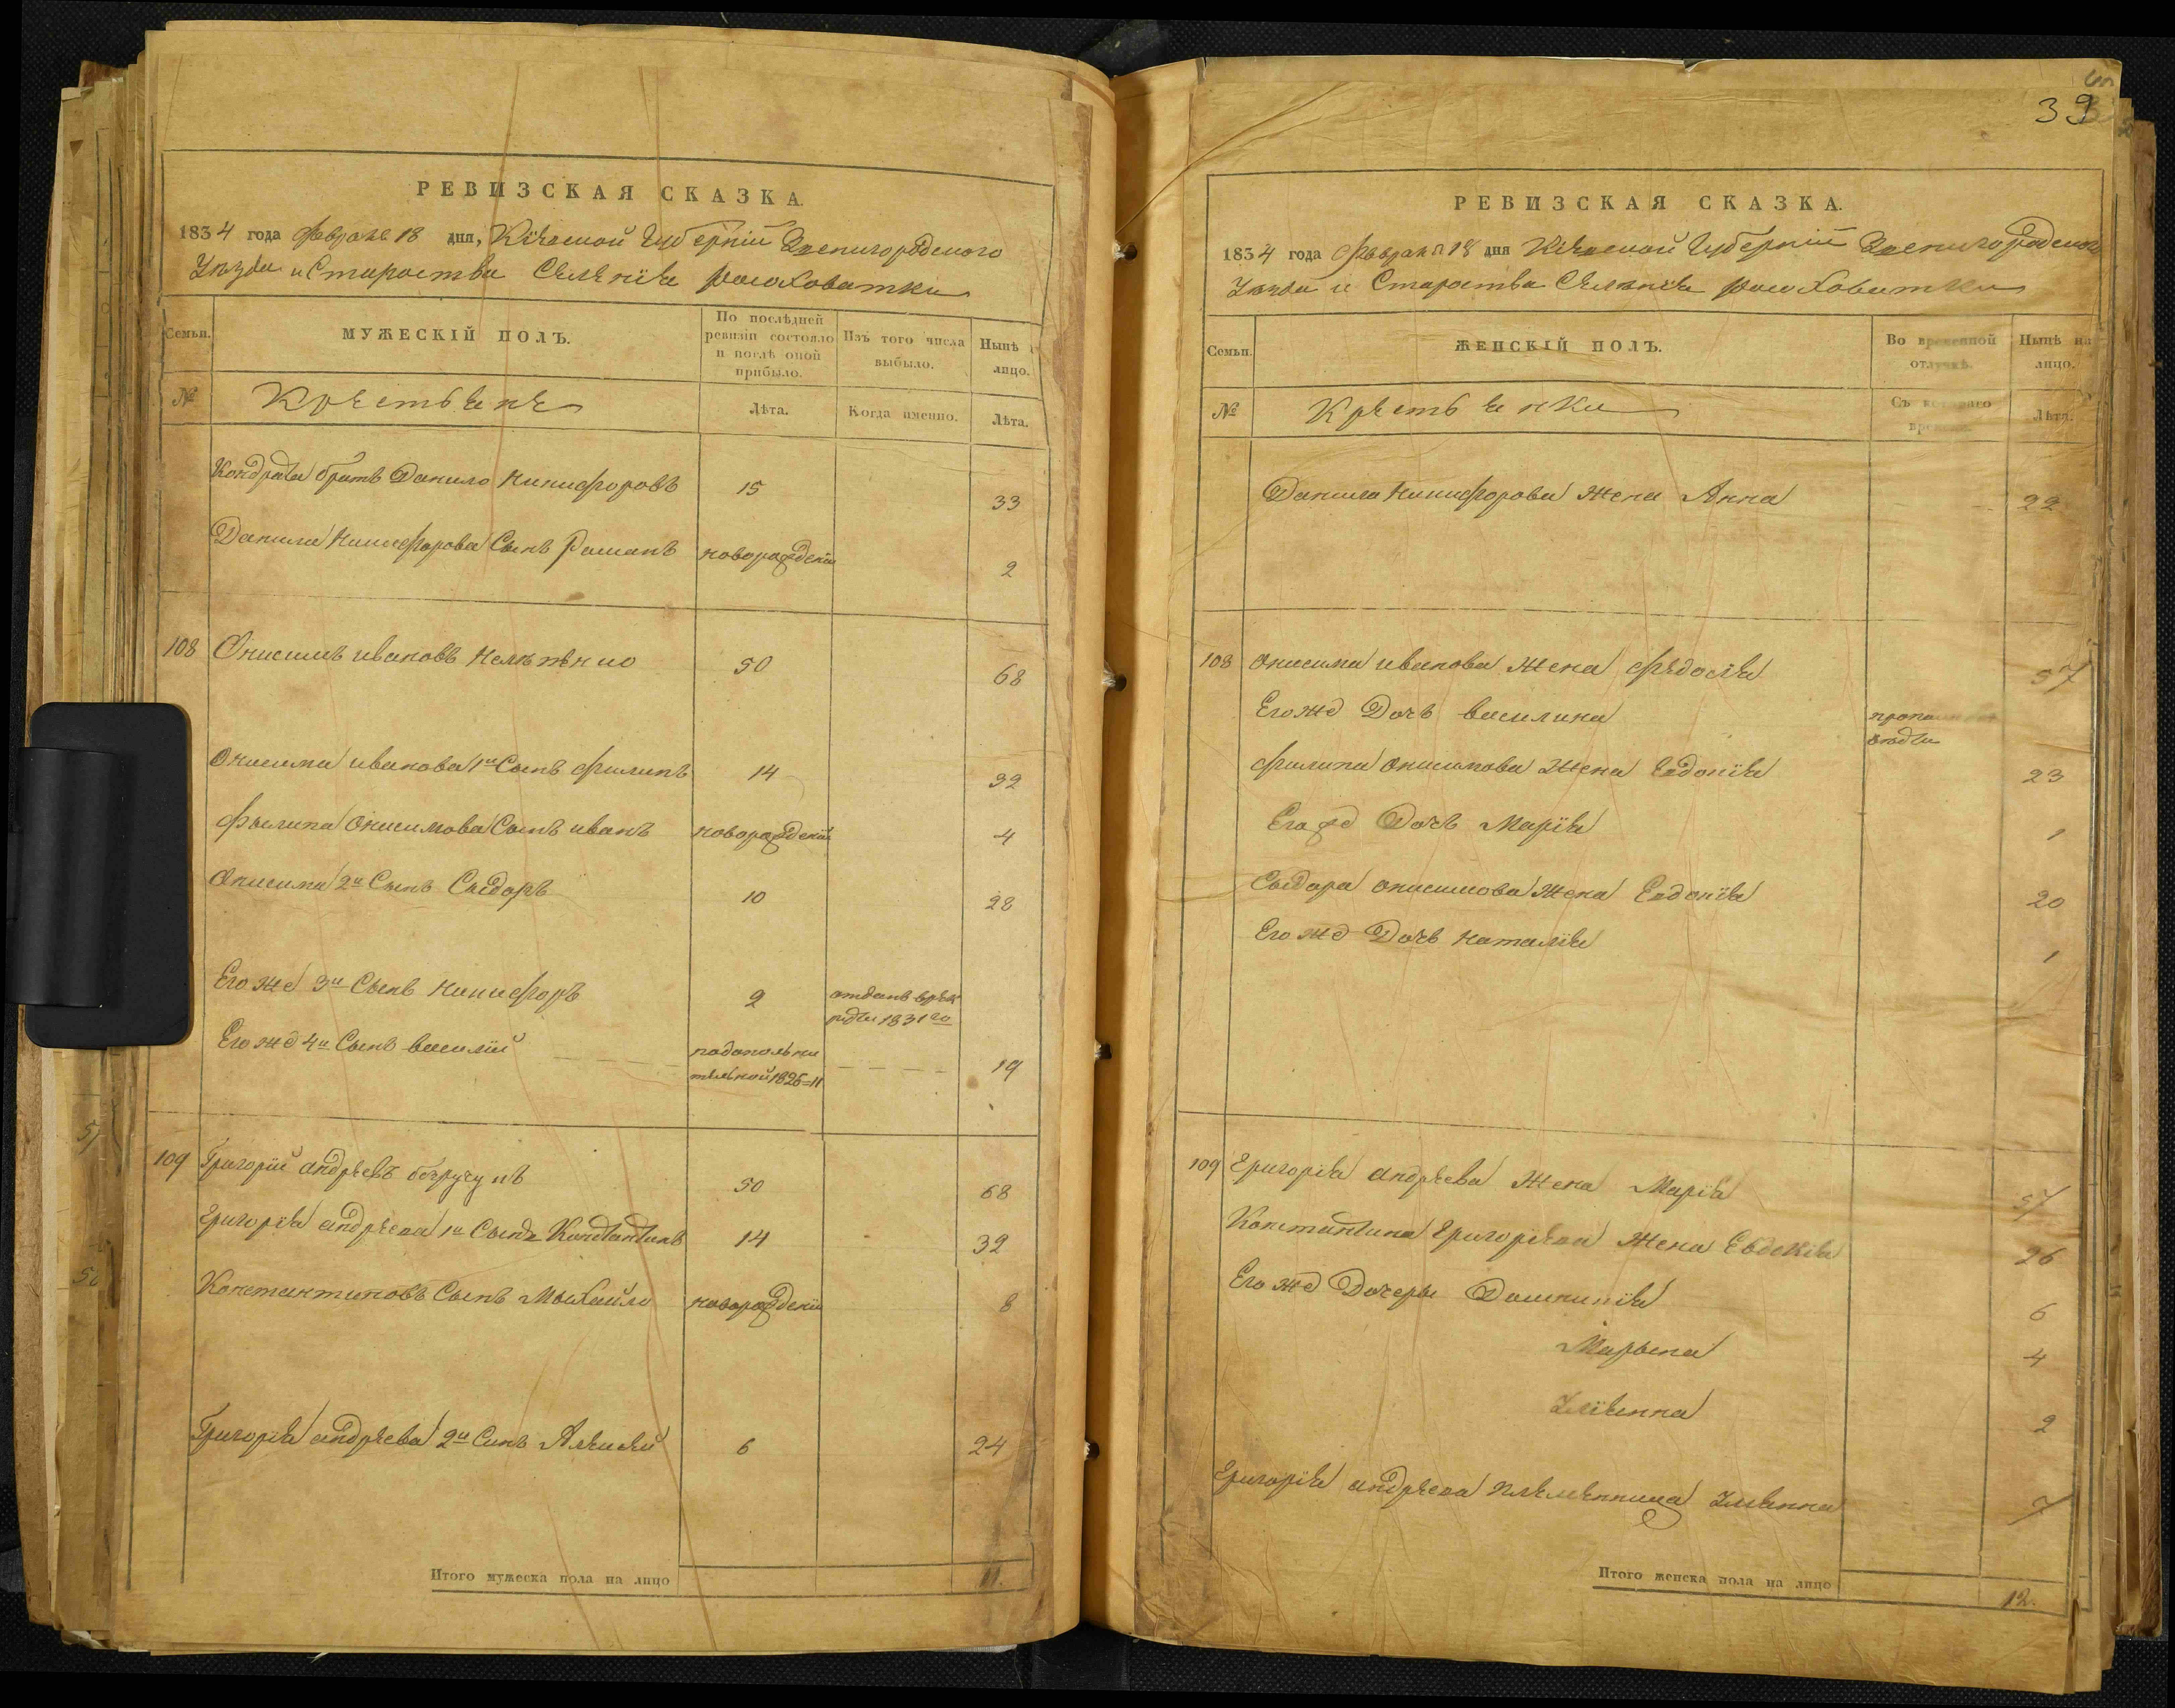 РЕВИЗСКАЯ СКАЗКА.
1834 года февраля 18 дня, Кіевской Губерніи Звенигородского
Уѣзда и Староства Селенія Рыжановки
Семьи. МУЖЕСКІЙ ПОЛЪ. По послѣдней ревизіи состояло и послѣ оной прибыло. Изъ того числа выбыло. Нынѣ на лицо.
№ Крестьяне Лѣта. Когда именно. Лѣта.
Кондрата братъ Данило Никифоровъ 15 33
Данила Никифорова Сынъ Романъ новорожденъ 2
108 Онисимъ ивановъ 50 68
Онисима иванова 1й Сынъ филипъ 14 32
Филипа Онисимова Сынъ иванъ новорожденъ 4
Онисима 2й Сынъ Сыдоръ 10 28
Его же 3й Сынъ Никифоръ 2 отданъ в рек
руты 1831го
Его же 4й Сынъ василій подополни 19
тельной 1826=11
109 Григорій андреевъ 50 68
Григорія андреева 1й Сынъ Константинъ 14 32
Константиновъ Сынъ Мыхайло новорожденъ 8
Григорія андреева 2й Синъ Алексѣй 6 24
Итого мужеска пола на лицо 11.
39
РЕВИЗСКАЯ СКАЗКА.
1834 года февраля 18 дня Кіевской Губерніи Звенигородского
Уѣзда и Староства Селенія
Семьи. ЖЕНСКІЙ ПОЛЪ. Во временной отлучкѣ. Нынѣ на лицо.
№ Крестьянки Съ котораго времени. Лѣта.
Данила Никифорова жена Анна 22
108 Онисима иванова жена федосія 57
Его же Дочъ василина
филипа онисимова жена Евдокія 23
Его же Дочъ Марія 1
Сыдора онисимова жена Евдокія 20
Его же Дочъ наталія 1
109 Григорія андреева жена Марія 57
Константина Григоріева жена Евдокія 26
Его же Дочеры Домникія 6
Марына 4
Уліянна 2
Григорія андреева племенница Уліянна 7
Итого женска пола на лицо 12.